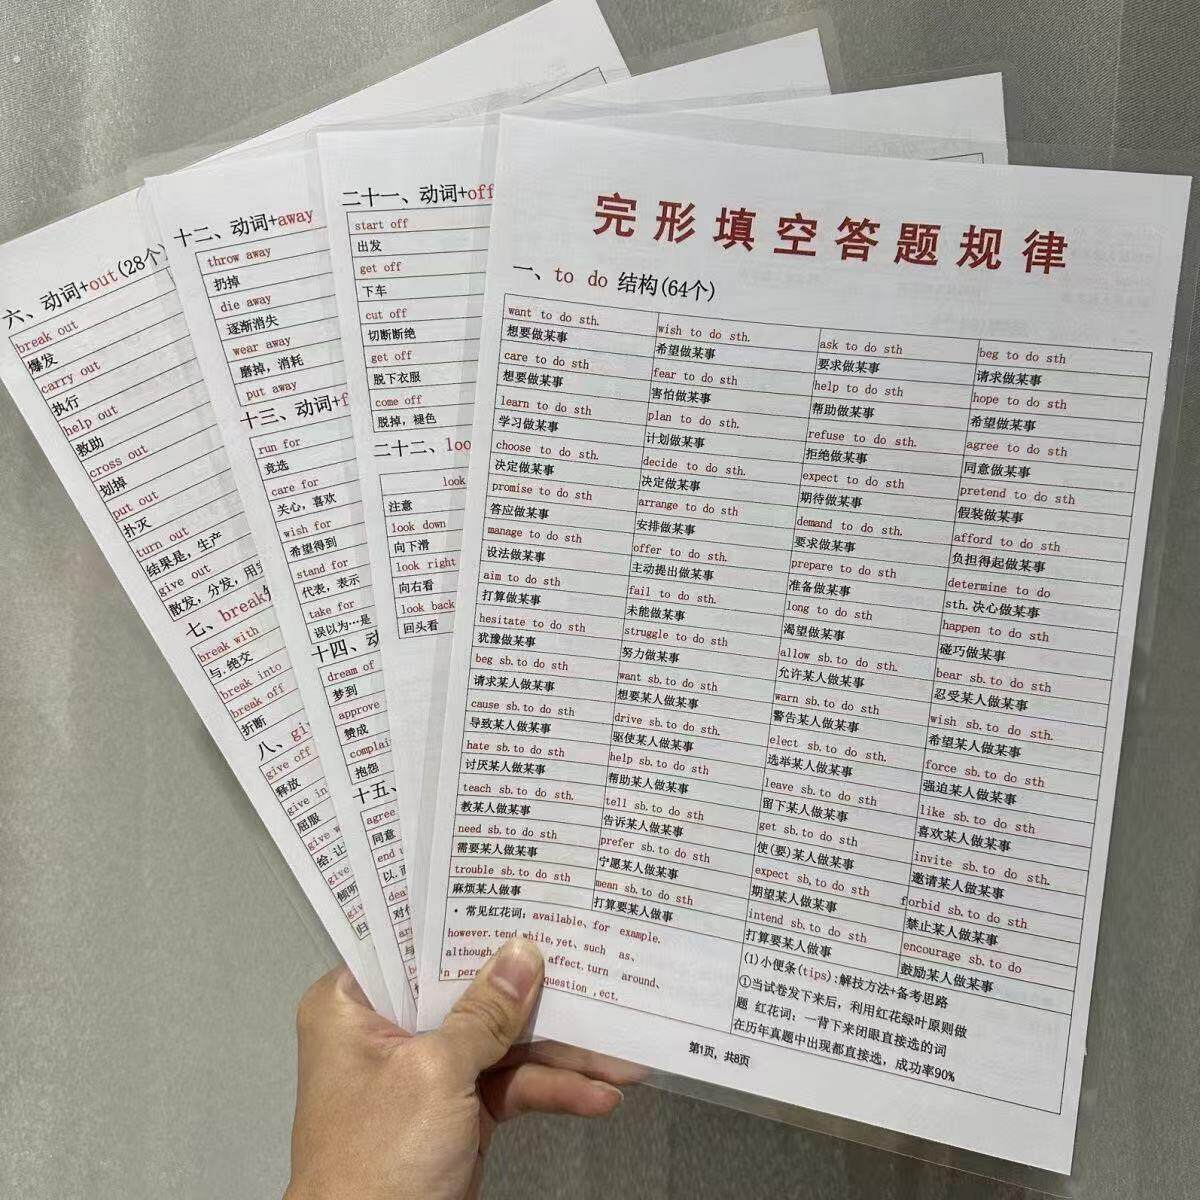 六、动词+out(28个)
break out
爆发
carry out
执行
help out
救助
cross out
划掉
put out
扑灭
turn out
结果是，生产
give out
散发，分发，用
七、break
break with
与.绝交
break into
break off
折断
八、
give off
释放
give in
屈服
give
给.让
give
倾听
十二、动词+away
throw away
扔掉
die away
逐渐消失
wear away
磨掉，消耗
put away
十三、动词+f
run for
竞选
care for
关心，喜欢
wish for
希望得到
stand for
代表，表示
take for
误以为…是
十四、动
dream of
梦到
approve
赞成
complai
抱怨
十五、
agree
同意
end
以.
二十一、动词+off
start off
出发
get off
下车
cut off
切断断绝
get off
脱下衣服
come off
脱掉，褪色
二十二、loo
look
注意
look down
向下滑
look right
向右看
look back
回头看
完形填空答题规律
一、to do 结构(64个)
want to do sth. wish to do sth. ask to do sth beg to do sth
想要做某事 希望做某事 要求做某事 请求做某事
care to do sth fear to do sth help to do sth hope to do sth
想要做某事 害怕做某事 帮助做某事 希望做某事
learn to do sth plan to do sth. refuse to do sth. agree to do sth
学习做某事 计划做某事 拒绝做某事 同意做某事
choose to do sth. decide to do sth. expect to do sth pretend to do sth
决定做某事 决定做某事 期待做某事 假装做某事
promise to do sth arrange to do sth demand to do sth. afford to do sth
答应做某事 安排做某事 要求做某事 负担得起做某事
manage to do sth offer to do sth. prepare to do sth determine to do
设法做某事 主动提出做某事 准备做某事 sth. 决心做某事
aim to do sth fail to do sth. long to do sth happen to do sth
打算做某事 未能做某事 渴望做某事 碰巧做某事
hesitate to do sth struggle to do sth allow sb. to do sth. bear sb. to do sth
犹豫做某事 努力做某事 允许某人做某事 忍受某人做某事
beg sb. to do sth want sb. to do sth warn sb. to do sth wish sb. to do sth
请求某人做某事 想要某人做某事 警告某人做某事 希望某人做某事
cause sb. to do sth drive sb. to do sth elect sb. to do sth force sb. to do sth
导致某人做某事 驱使某人做某事 选举某人做某事 强迫某人做某事
hate sb. to do sth help sb. to do sth leave sb. to do sth like sb. to do sth
讨厌某人做某事 帮助某人做某事 留下某人做某事 喜欢某人做某事
teach sb. to do sth. tell sb. to do sth get sb. to do sth invite sb. to do sth.
教某人做某事 告诉某人做某事 使(要)某人做某事 邀请某人做某事
need sb. to do sth prefer sb. to do sth expect sb, to do sth forbid sb. to do sth
需要某人做某事 宁愿某人做某事 期望某人做某事 禁止某人做某事
trouble sb. to do sth mean sb. to do sth intend sb. to do sth encourage sb. to do
麻烦某人做某事 打算要某人做某事 打算要某人做某事 鼓励某人做某事
·常见红花词：available、for example.
however.tend while,yet、such as、
although. affect.turn around、
question ,ect.
(1)小便条(tips):解技方法+备考思路
①当试卷发下来后，利用红花绿叶原则做
题 红花词：一背下来闭眼直接选的词
在历年真题中出现都直接选，成功率90%
第1页，共8页